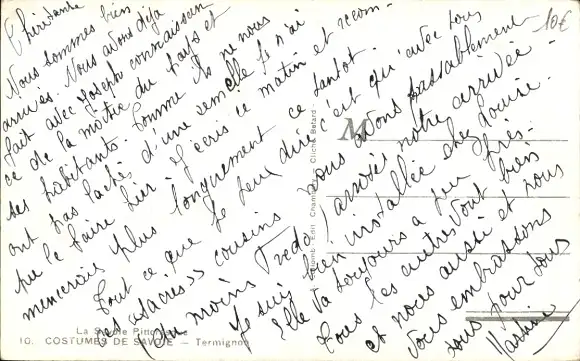 Chère Tante
Nous sommes bien
arrivés. Nous avons déjà
fait avec Joseph connaissance
ce de la moitié du pays et
ses habitants. Comme ils ne nous
ont pas lâché d'une semelle je n'ai
pu le faire hier. J'écris ce matin et recom-
mencerais plus longuement ce tantôt.
Tout ce que je peux dire c'est qu'avec tous
ces "sacrés" cousins nous avons passablement
(du moins Fredo) arrosé notre arrivée.
Je suis bien installée chez Louise.
Elle va toujours à peu près.
Tous les autres vont bien
et nous aussi et nous
vous embrassons
tous pour tous
10€
Edit Chambéry - Cliché Befard
La Savoie Pittoresque
10. COSTUMES DE SAVOIE - Termignon